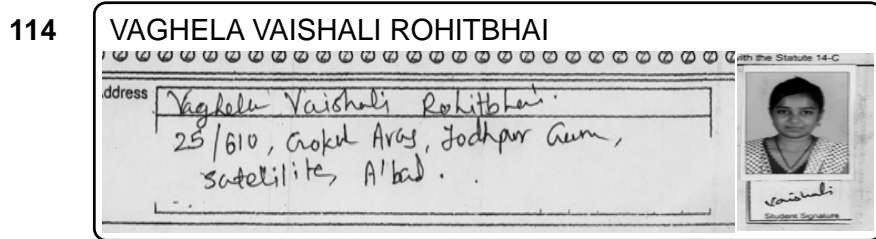 114
VAGHELA VAISHALI ROHITBHAI
with the Statute 14-C
ddress
Vaghela Vaishali Rohitbhai.
25/610, Gokul Avas, Jodhpur Gum,
Satelilite, A'bad.
Vaishali
Student Signature